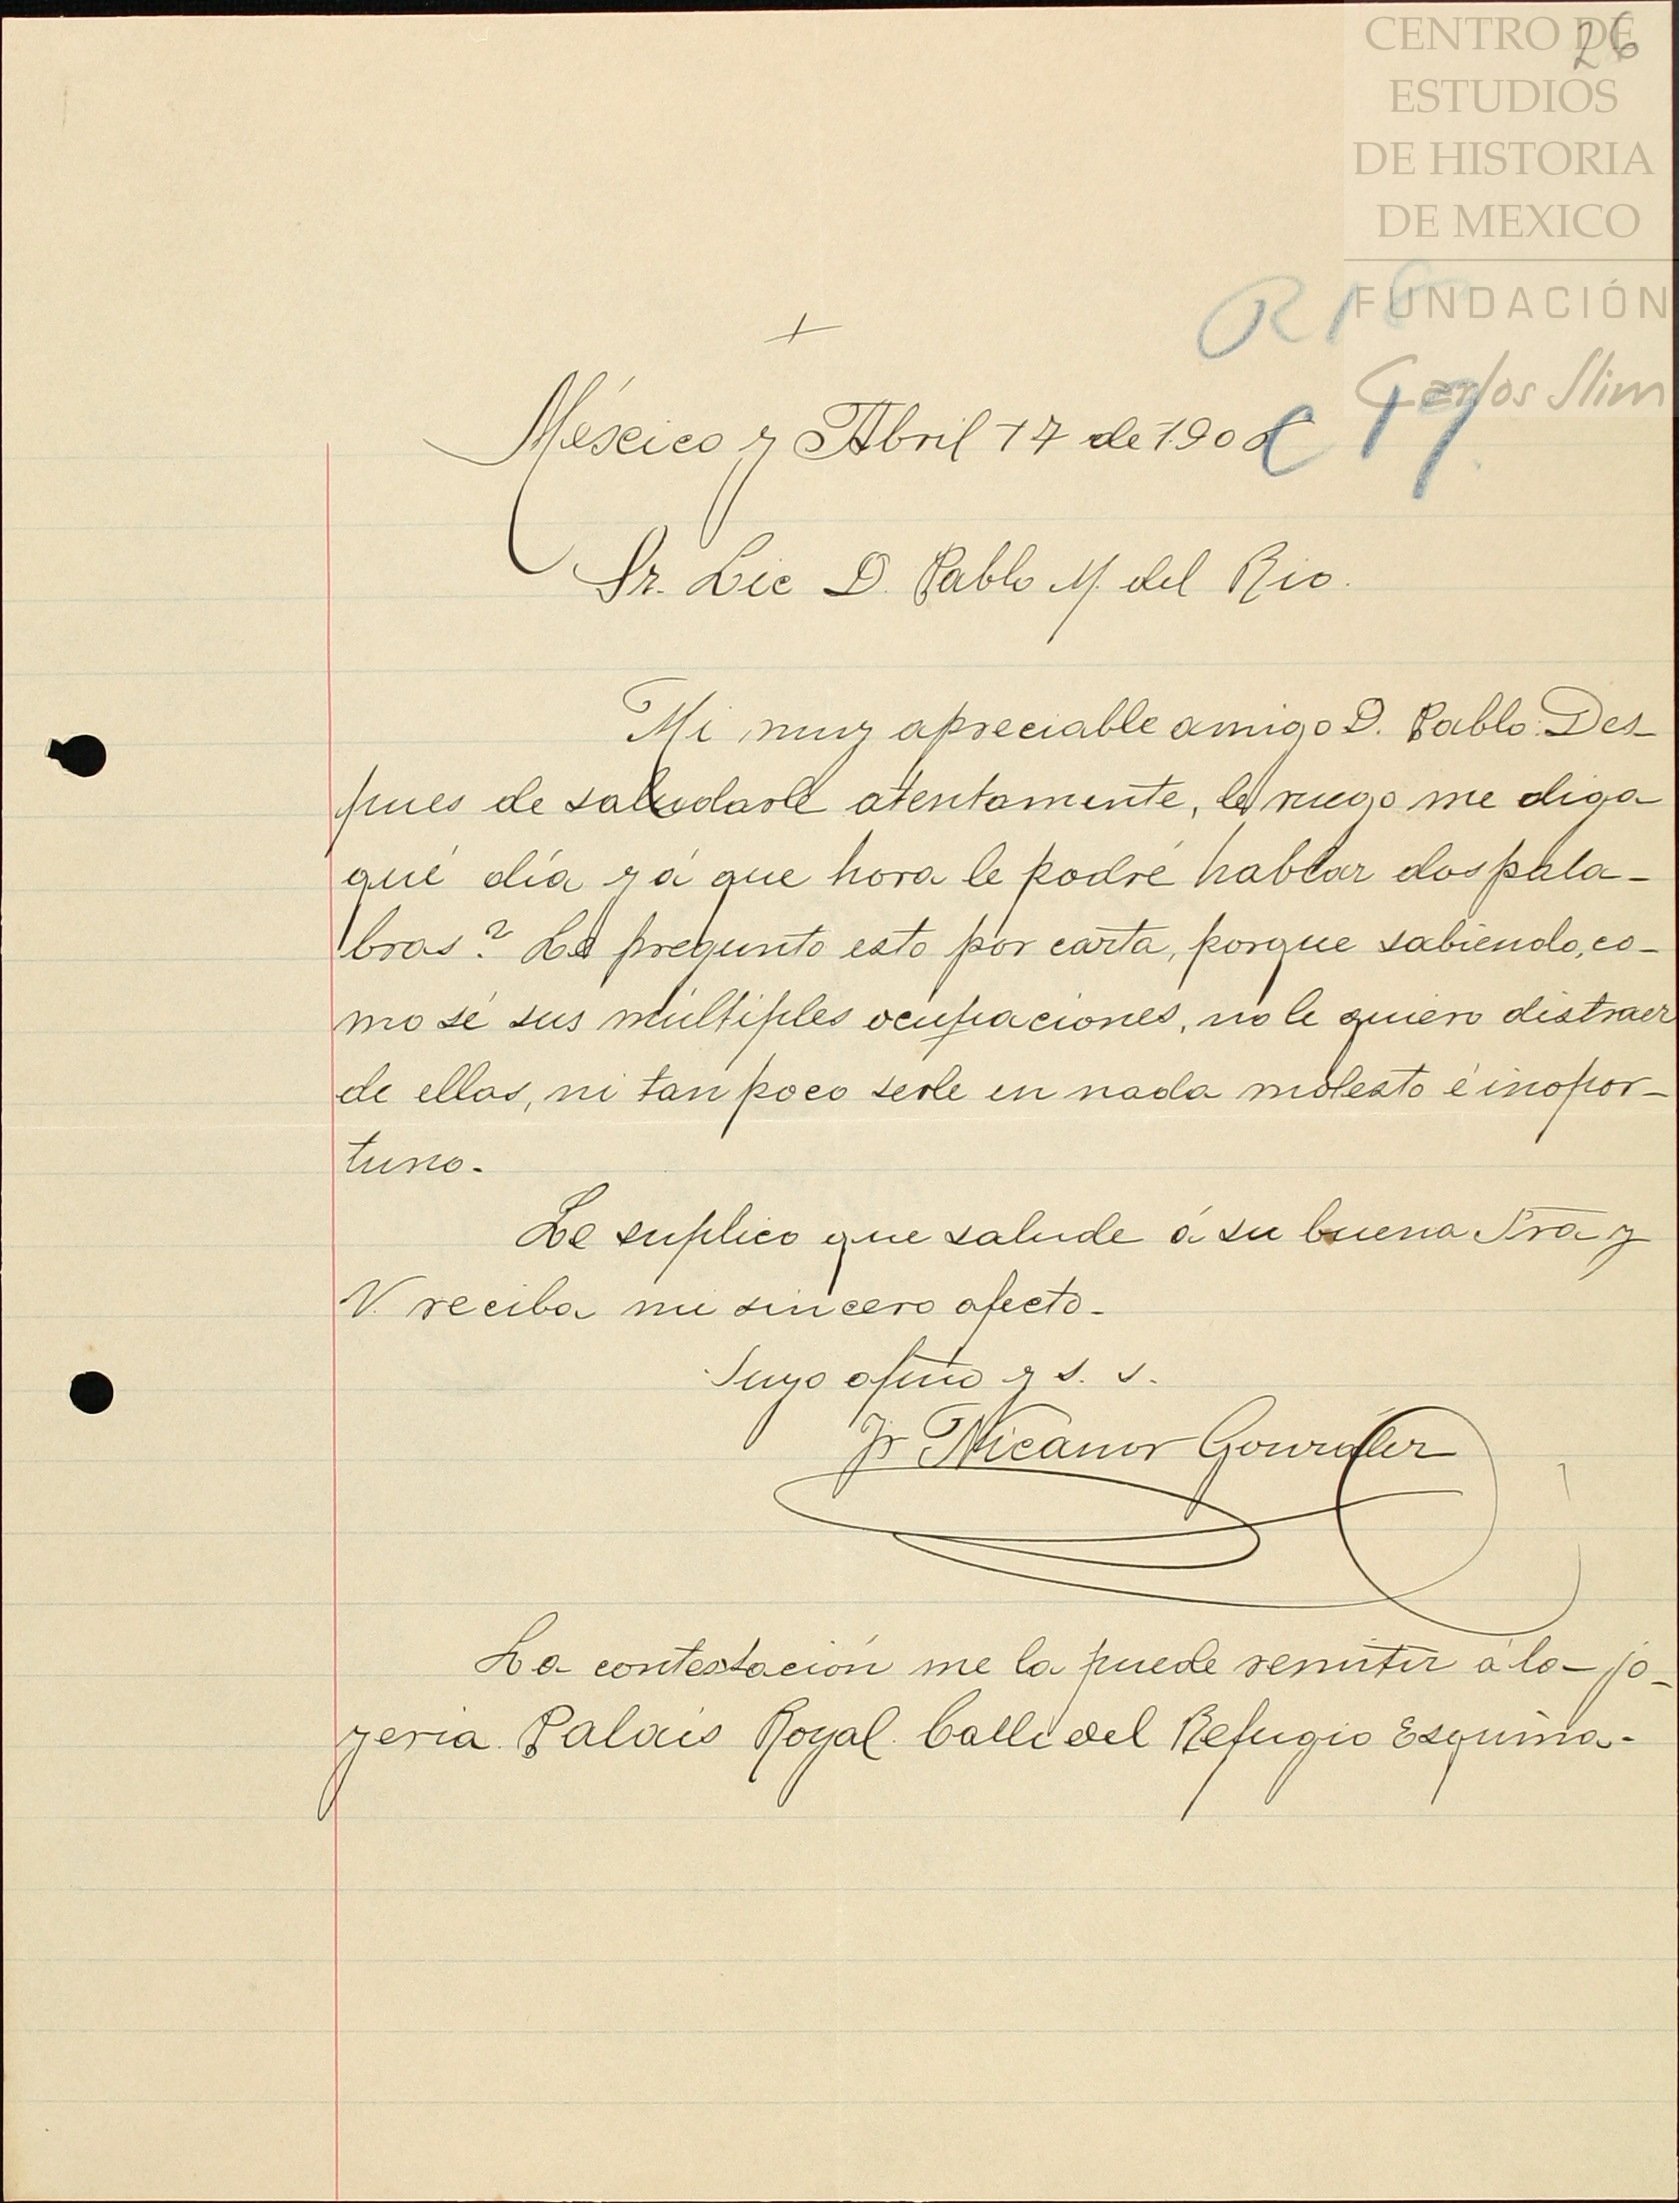 CENTRO DE
26
ESTUDIOS
DE HISTORIA
DE MEXICO
FUNDACIÓN
Carlos Slim
+
México y Abril 17 de 1908
17
Sr. Lic D. Pablo M. del Rio.
Mi muy apreciable amigo D. Pablo: Des-
pues de saludarle atentamente, le ruego me diga
qué día y á que hora le podré hablar dos pala-
bras? Le pregunto esto por carta, porque sabiendo, co-
mo sé sus múltiples ocupaciones, no le quiero distraer
de ellas, ni tan poco serle en nada molesto é inopor-
tuno.
Le suplico que salude á su buena Sra y
V. reciba mi sincero afecto.
Suyo afmo y s. s.
Fr Nicanor González
La contestación me la puede remitir á la jo-
yeria. Palais Royal. Calle del Refugio Esquina.